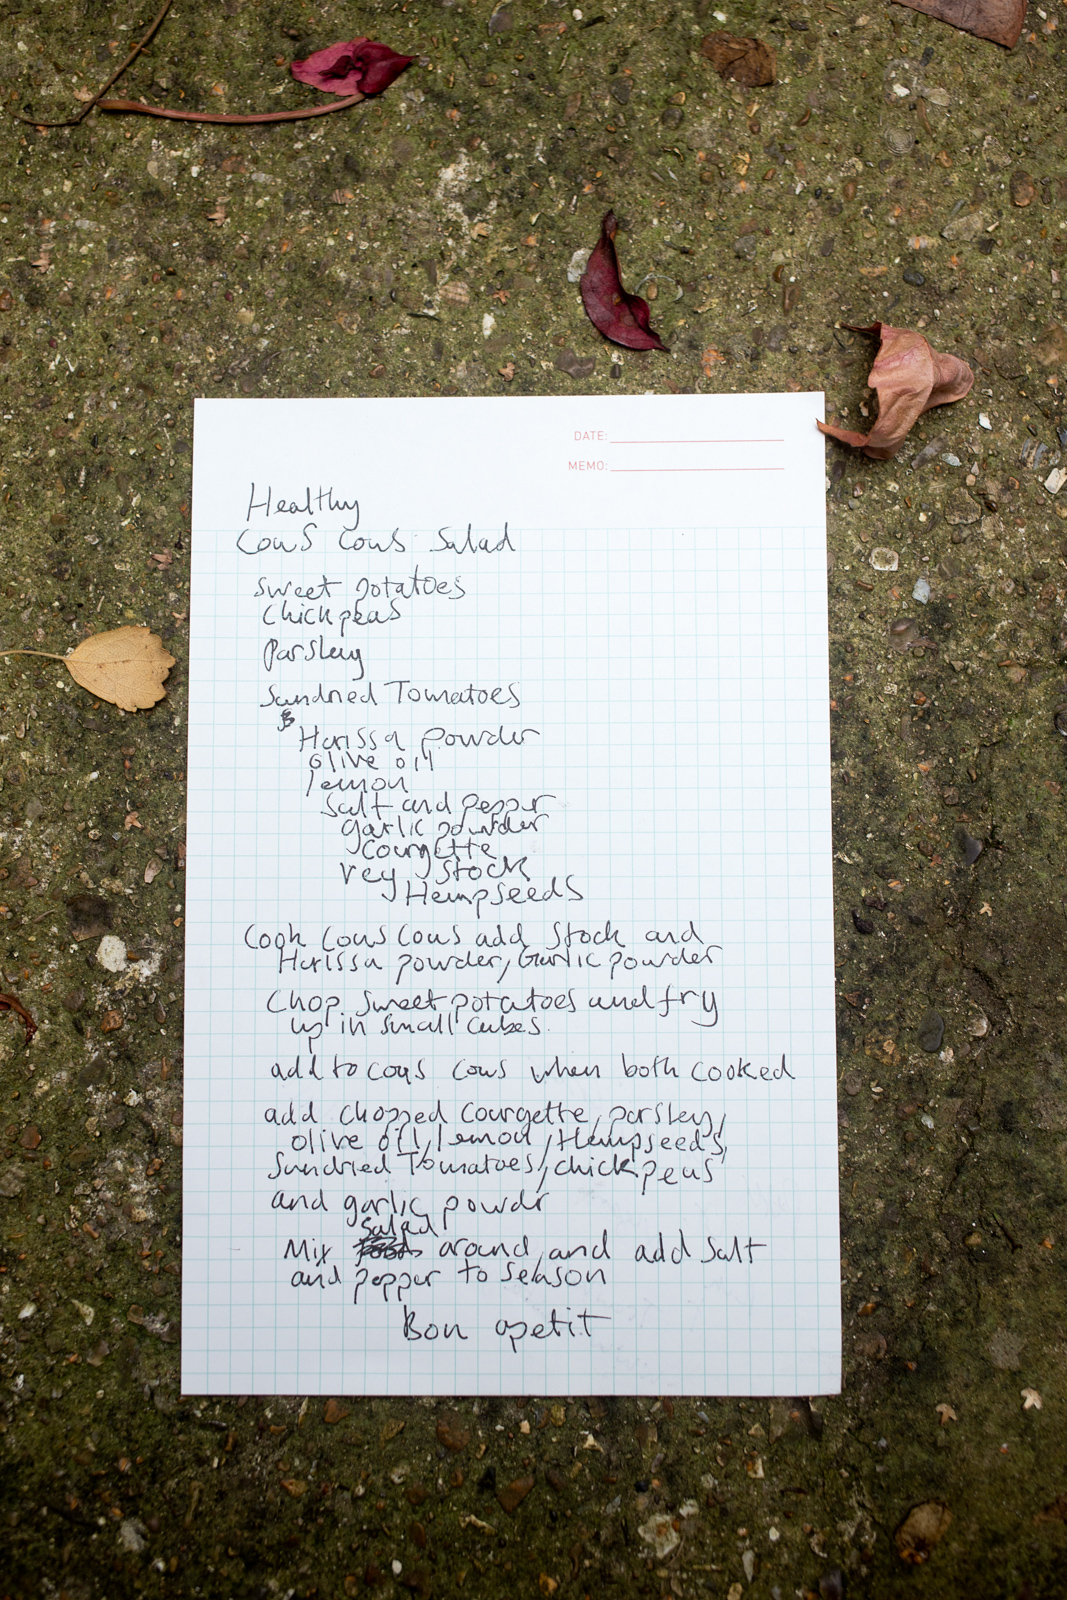 DATE:
MEMO:
Healthy
Cous Cous Salad
Sweet potatoes
Chickpeas
Parsley
Sundried Tomatoes
Harissa powder
olive oil
lemon
Salt and pepper
garlic powder
Courgette
Veg Stock
Hempseeds
Cook Cous Cous add Stock and
Harissa powder, Garlic powder
Chop sweet potatoes and fry
up in small cubes.
add to cous cous when both cooked
add chopped Courgette, parsley,
olive oil, lemon, Hempseeds,
Sundried Tomatoes, chickpeas
and garlic powdr
Salad
Mix around, and add Salt
and pepper to season
Bon apetit